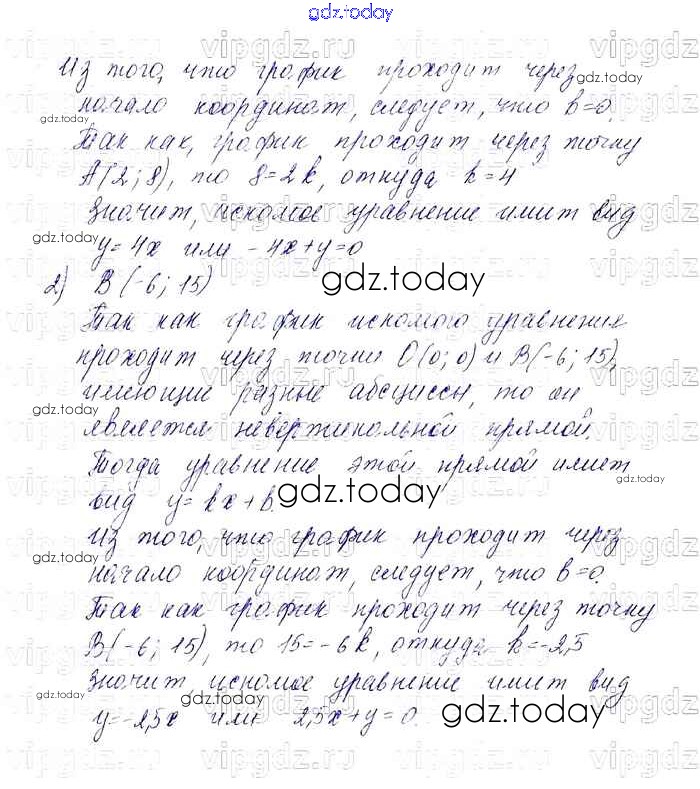 gdz.today
Из того, что график проходит через
начало координат, следует, что b=0.
Так как, график проходит через точку
A(2; 8), то 8=2k, откуда k=4
Значит, искомое уравнение имит вид
y=4x или -4x+y=0
2) B(-6; 15)
gdz.today
Так как график искомого уравнения
проходит через точки O(0; 0) и B(-6; 15),
имеющие разные абсциссы, то он
является невертикальной прямой.
Тогда уравнение этой прямой имеет
вид y=kx+b.
gdz.today
Из того, что график проходит через
начало координат, следует, что b=0.
Так как график проходит через точку
B(-6; 15), то 15=-6k, откуда k=-2,5
Значит, искомое уравнение имит вид
y=-2,5x или 2,5x+y=0.
gdz.today